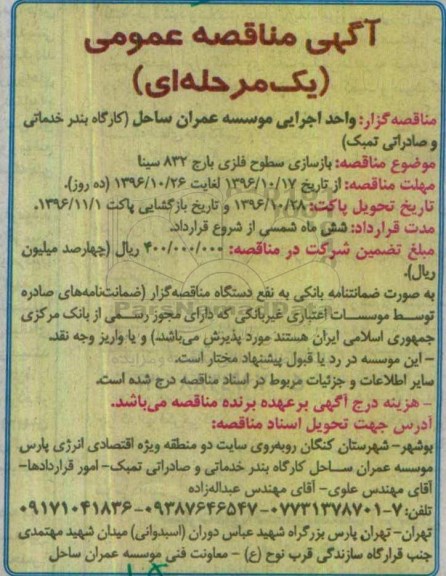 آگهی مناقصه عمومی
(یک‌مرحله‌ای)
مناقصه‌گزار: واحد اجرایی موسسه عمران ساحل (کارگاه بندر خدماتی
و صادراتی تمبک)
موضوع مناقصه: بازسازی سطوح فلزی بارج ۸۳۲ سینا
مهلت مناقصه: از تاریخ ۱۳۹۶/۱۰/۱۷ لغایت ۱۳۹۶/۱۰/۲۶ (ده روز).
تاریخ تحویل پاکت: ۱۳۹۶/۱۰/۲۸ و تاریخ بازگشایی پاکت ۱۳۹۶/۱۱/۱.
مدت قرارداد: شش ماه شمسی از شروع قرارداد.
مبلغ تضمین شرکت در مناقصه: ۴۰۰/۰۰۰/۰۰۰ ریال (چهارصد میلیون
ریال).
به صورت ضمانتنامه بانکی به نفع دستگاه مناقصه‌گزار (ضمانت‌نامه‌های صادره
توسط موسسات اعتباری غیربانکی که دارای مجوز رسمی از بانک مرکزی
جمهوری اسلامی ایران هستند مورد پذیرش می‌باشد) و یا واریز وجه نقد.
- این موسسه در رد یا قبول پیشنهاد مختار است.
سایر اطلاعات و جزئیات مربوط در اسناد مناقصه درج شده است.
- هزینه درج آگهی برعهده برنده مناقصه می‌باشد.
آدرس جهت تحویل اسناد مناقصه:
بوشهر- شهرستان کنگان روبه‌روی سایت دو منطقه ویژه اقتصادی انرژی پارس
موسسه عمران ساحل کارگاه بندر خدماتی و صادراتی تمبک- امور قراردادها-
آقای مهندس علوی- آقای مهندس عبداله‌زاده
تلفن: ۷-۰۷۷۳۱۳۷۸۷۰۱-۰۹۳۸۷۶۴۶۵۴۷-۰۹۱۷۱۰۴۱۸۳۶
تهران- تهران پارس بزرگراه شهید عباس دوران (اسبدوانی) میدان شهید مهتمدی
جنب قرارگاه سازندگی قرب نوح (ع) - معاونت فنی موسسه عمران ساحل